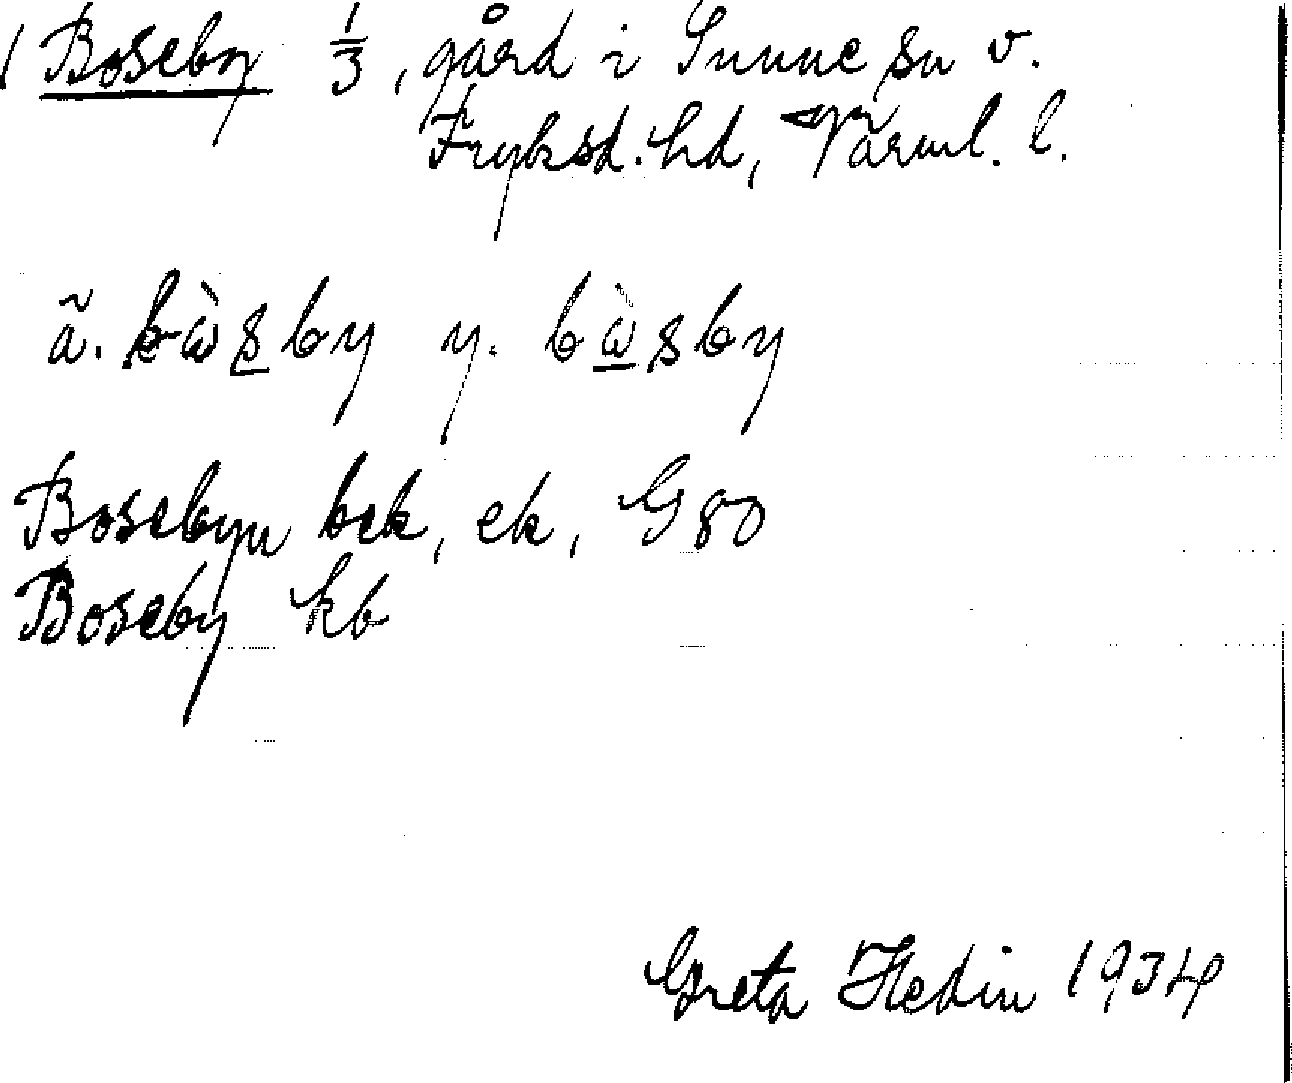 1 Boseby 1/3, gård i Sunne sn v.
Fryksd. hd, Värml. l.
ä. bὼs̲by y. bὼ̲sby
Bosebyn bek, ek, G 80
Boseby kb
Greta Hedin 1934